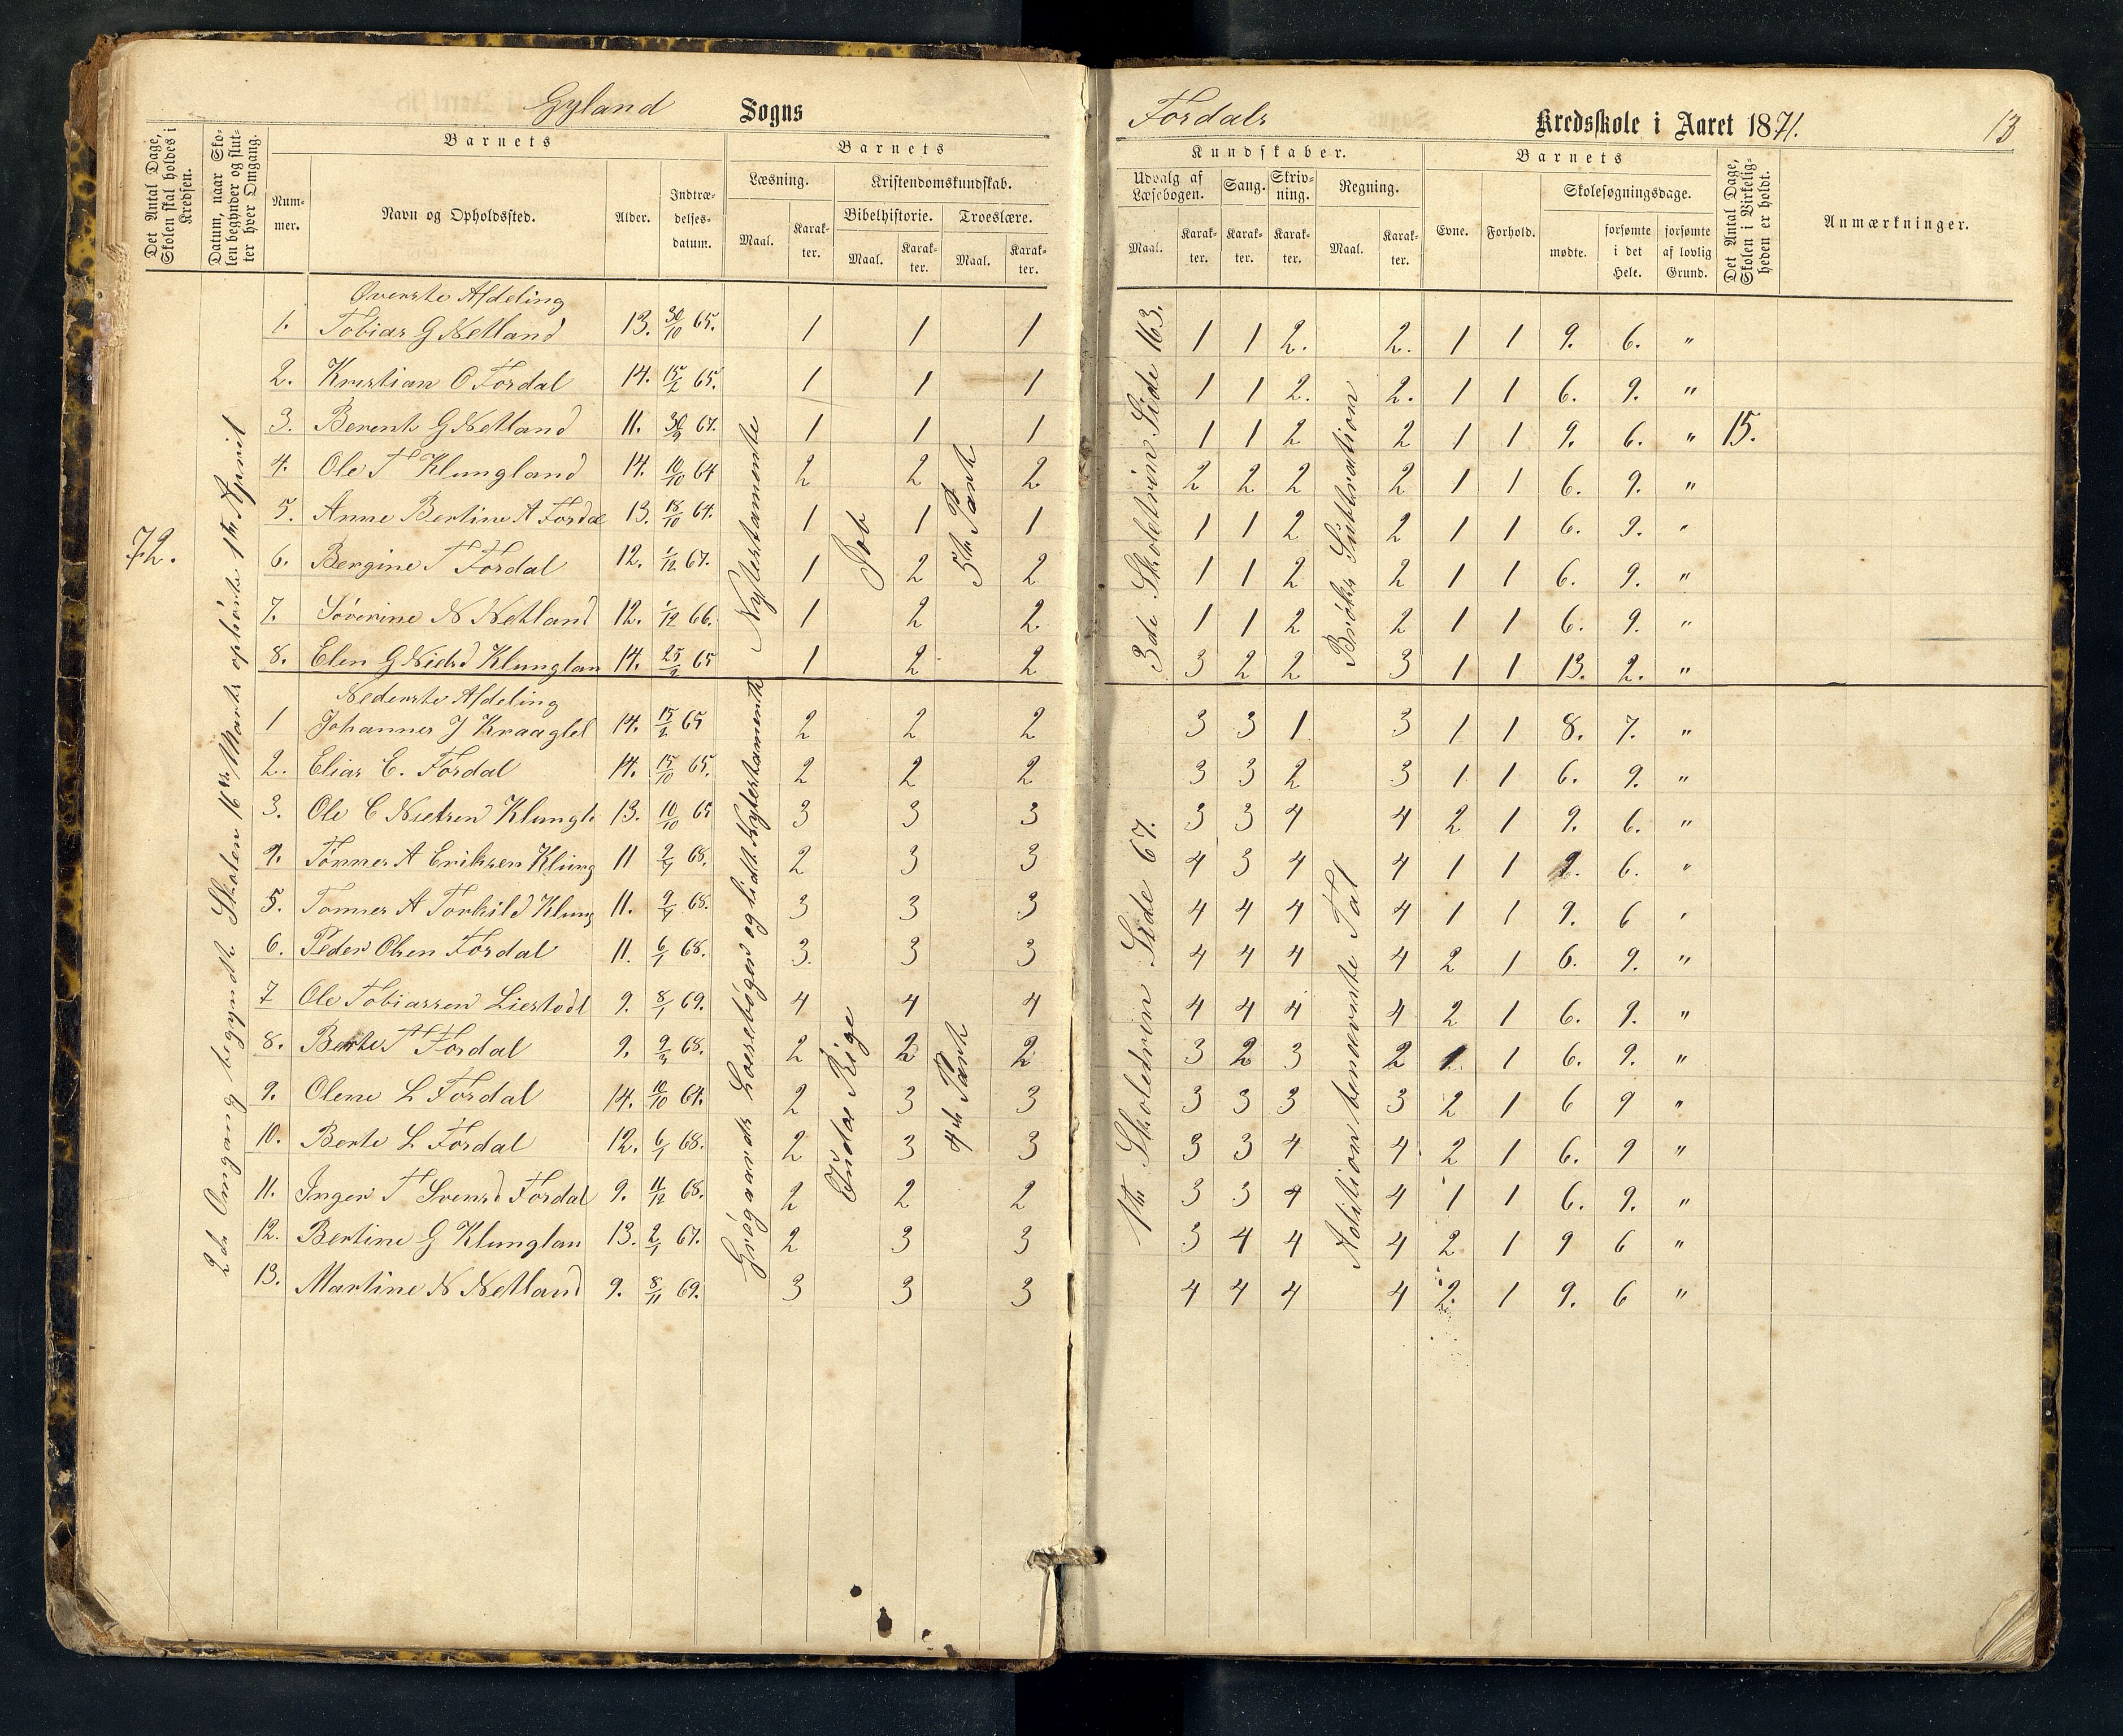 Gyland Sogns
Fordals Kredsskole i Aaret 1871. 13
Det Antal Dage, Skolen skal holdes i Kredsen.
Datum, naar Skolen begynder og slutter hver Omgang.
Barnets
Nummer.
Navn og Opholdssted.
Alder.
Indtrædelsesdatum.
Barnets
Læsning.
Maal.
Karakter.
Kristendomskundskab.
Bibelhistorie.
Maal.
Karakter.
Troeslære.
Maal.
Karakter.
Kundskaber.
Udvalg af Læsebogen.
Maal.
Karakter.
Sang.
Karakter.
Skrivning.
Karakter.
Regning.
Maal.
Karakter.
Barnets
Evne.
Forhold.
Skolesøgningsdage.
mødte.
forsømte i det Hele.
forsømte af lovlig Grund.
Det Antal Dage, Skolen i Virkeligheden er holdt.
Anmærkninger.
72.
2de Omgang begyndte Skolen 16de Marts ophørte 1ste April
Nytestamente
Job
5te Part
3de Skoletrin Side 163.
Brøks Subtration
15.
Øverste Afdeling
1. Tobias G Netland 13. 30/10 65. 1 1 1 1 1 2. 2. 1 1 9. 6. "
2. Kristian O Fordal 14. 15/2 65. 1 1 1 1 1 2. 2. 1 1 6. 9. "
3. Berent G Netland 11. 30/9 67. 1 1 1 1 1 2 2 1 1 9. 6. "
4. Ole T Klungland 14. 10/10 64 2 2 2. 2 2 2 2 1 1 6. 9. "
5. Anne Bertine A Fordal 13. 18/10 64. 1 1 1 1 1 2 2 1 1 6. 9. "
6. Bergine T Fordal 12. 1/12 67. 1 2 2 1 1 2 2 1 1 6. 9. "
7. Severine N Netland 12. 1/12 66. 1 2 2. 1 1 2 2 1 1 6. 9. "
8. Elen G Nielsd Klunglan 14. 25/9 65 1 2 2 3 2 2 3 1 1 13. 2. "
Grøgaards Læsebøger og lidt Nytestamente
Endar Rige
4de Part
1ste Skoletrin Side 67.
Adistion benævnte Tal
Nederste Afdeling
1 Johannes J Kraaglel 14. 15/2 65 2 2 2 3 3 1 3 1 1 8. 7. "
2. Elias E. Fordal 14. 15/10 65. 2 2 2 3 3 2 3 1 1 6. 9. "
3. Ole C Nielsen Klungl 13. 10/10 65 3 3 3 3 3 4 4 2 1 9. 6. "
4. Tønnes A Eriksen Klung 11 2/4 68. 2 3 3 4 3 4 4 1 1 9. 6. "
5. Tonnes A Torkild Klung 11. 9/4 68. 3 3 3 4 4 4 4 1 1 9. 6 "
6. Peder Olsen Fordal 11. 6/1 68. 3. 3 3 4 4 4 4 2 1 6. 9. "
7 Ole Tobiassen Liestodl 9. 8/1 69. 4 4 4 4 4 4 4 2 1 6. 9. "
8. Berte T Fordal 9. 9/3 68. 2 2 2 3 2 3 2 1 1 6. 9. "
9. Olene L Fordal 14. 10/10 64. 2 3 3 3 3 3 3 2 1 6 9 "
10. Berte L Fordal 12. 6/1 68. 2 3 3 3 3 4 4 2 1 6. 9 "
11. Inger T Svensd Fordal 9. 11/12 68. 2 2 2 3 3 4 4 1 1 6. 9. "
12. Bertine G Klunglan 13. 2/1 67. 2 3 3 3 4 4 4 2 1 9 6 "
13. Martine N Netland 9. 8/11 69. 3 3 3 4 4 4 4 2. 1 9. 6 "